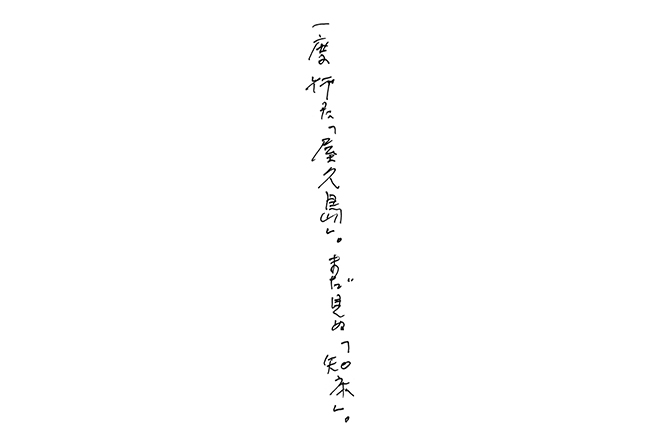 一度行た「屋久島」。まだ見ぬ「知床」。